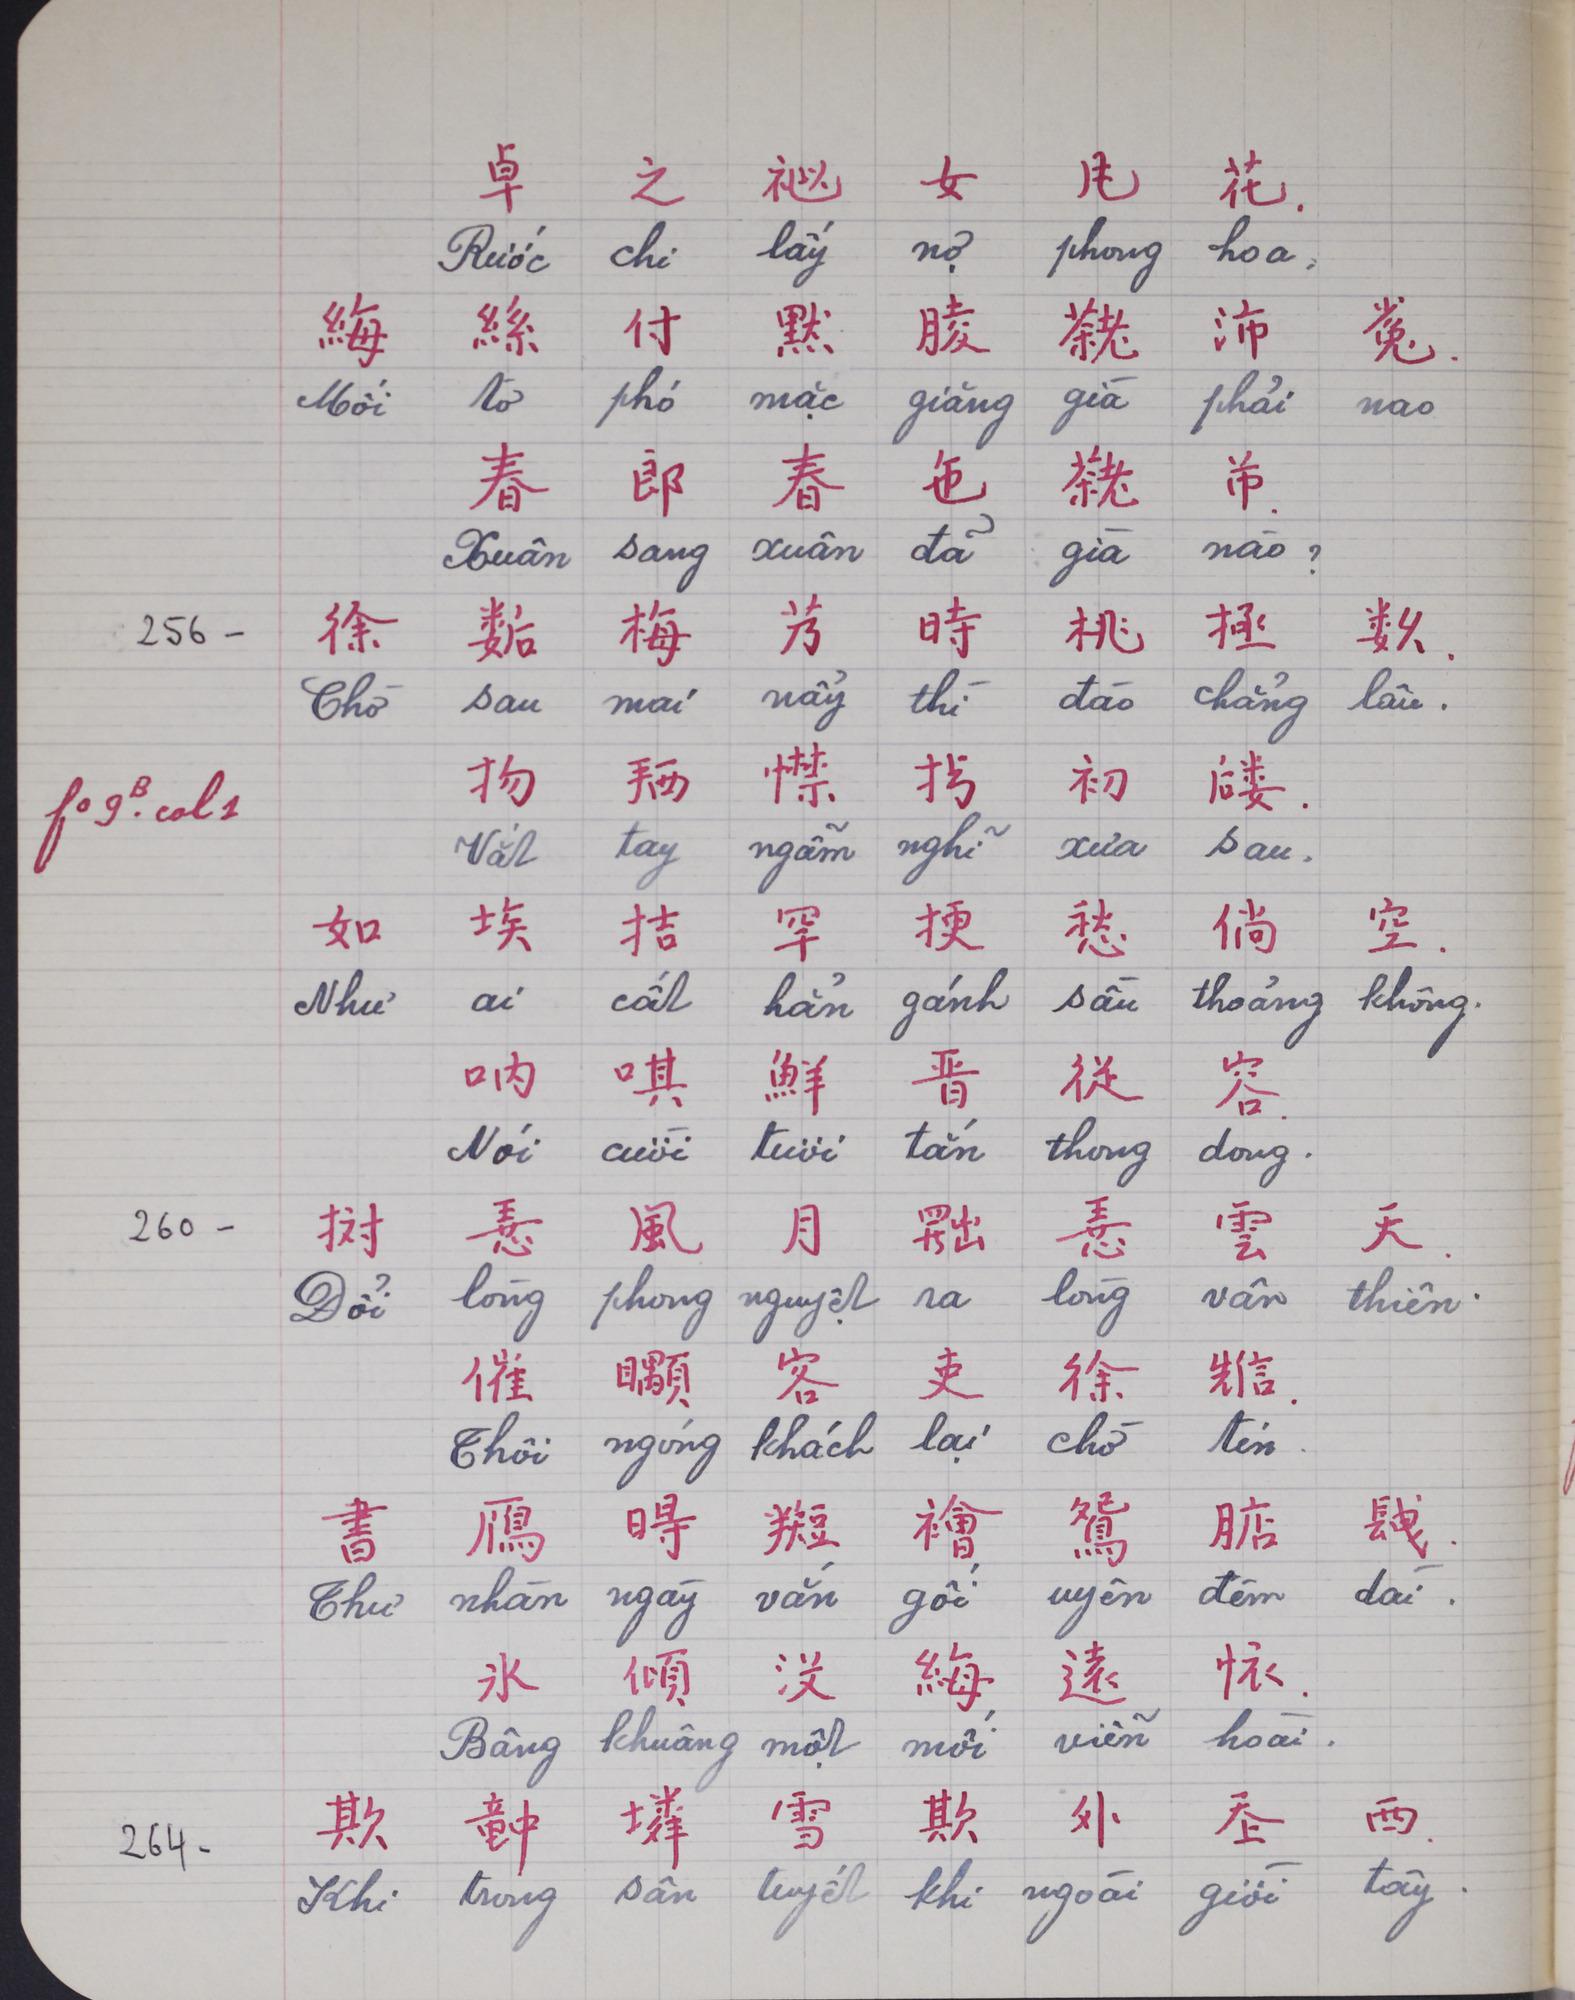 卓 之 𥙩 女 凡 花.
Rước chi lấy nợ phong hoa,
絲 付 默 𦝄 沛
Mối tơ phó mặc giăng già phải nao
春 郎 春 㐌 芇.
Xuân sang xuân đã già nào?
256 - 徐 梅 時 桃 拯 数.
Chờ sau mai nảy thì đào chẳng lâu.
㧅 𢬣 㦗 初 𡢐.
fo 9B. col 1
Vắt tay ngẫm nghĩ xưa sau.
如 埃 拮 罕 挭 愁 倘 空.
Như ai cất hẳn gánh sầu thoảng không.
吶 唭 鮮 晋 從 容.
Nói cười tươi tắn thong dong.
260 - 𢚸 風 月 𠚢 𢚸 雲 天.
Đổi lòng phong nguyệt ra lòng vân thiên.
催 客 吏 徐 信.
Thôi ngóng khách lại chờ tin.
書 鴈 𣈜 𥐆 鴛 𣎀 𨱽.
Thư nhàn ngày vắn gối uyên đêm dài.
氷 傾 没 遠 懷.
Bâng khuâng một mối viễn hoài.
264 - 欺 𥪝 𡑝 雪 欺 外 𡗶 西.
Khi trong sân tuyết khi ngoài giời tây.